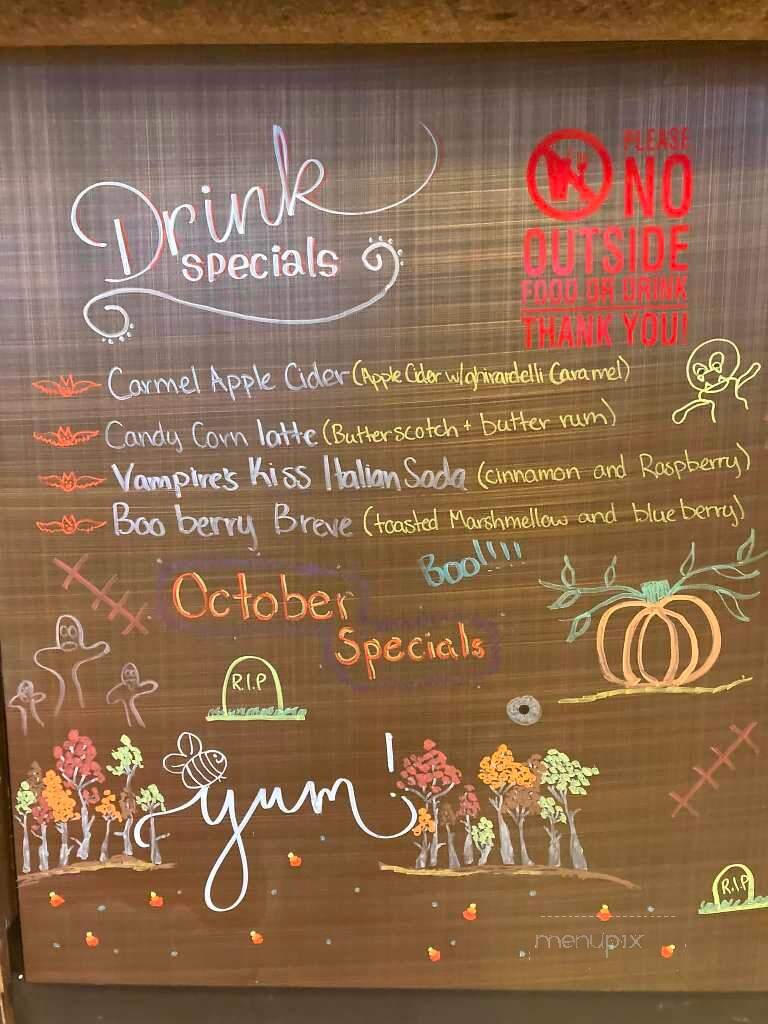 Drink
specials
PLEASE
NO
OUTSIDE
FOOD OR DRINK
THANK YOU!
Carmel Apple Cider (Apple Cider w/ghirardelli Caramel)
Candy Corn latte (Butterscotch + butter rum)
Vampire's Kiss Italian Soda (cinnamon and Raspberry)
Boo berry Breve (toasted Marshmellow and blueberry)
Boo!!!!
October
Specials
R.I.P
yum!
R.I.P
menupix